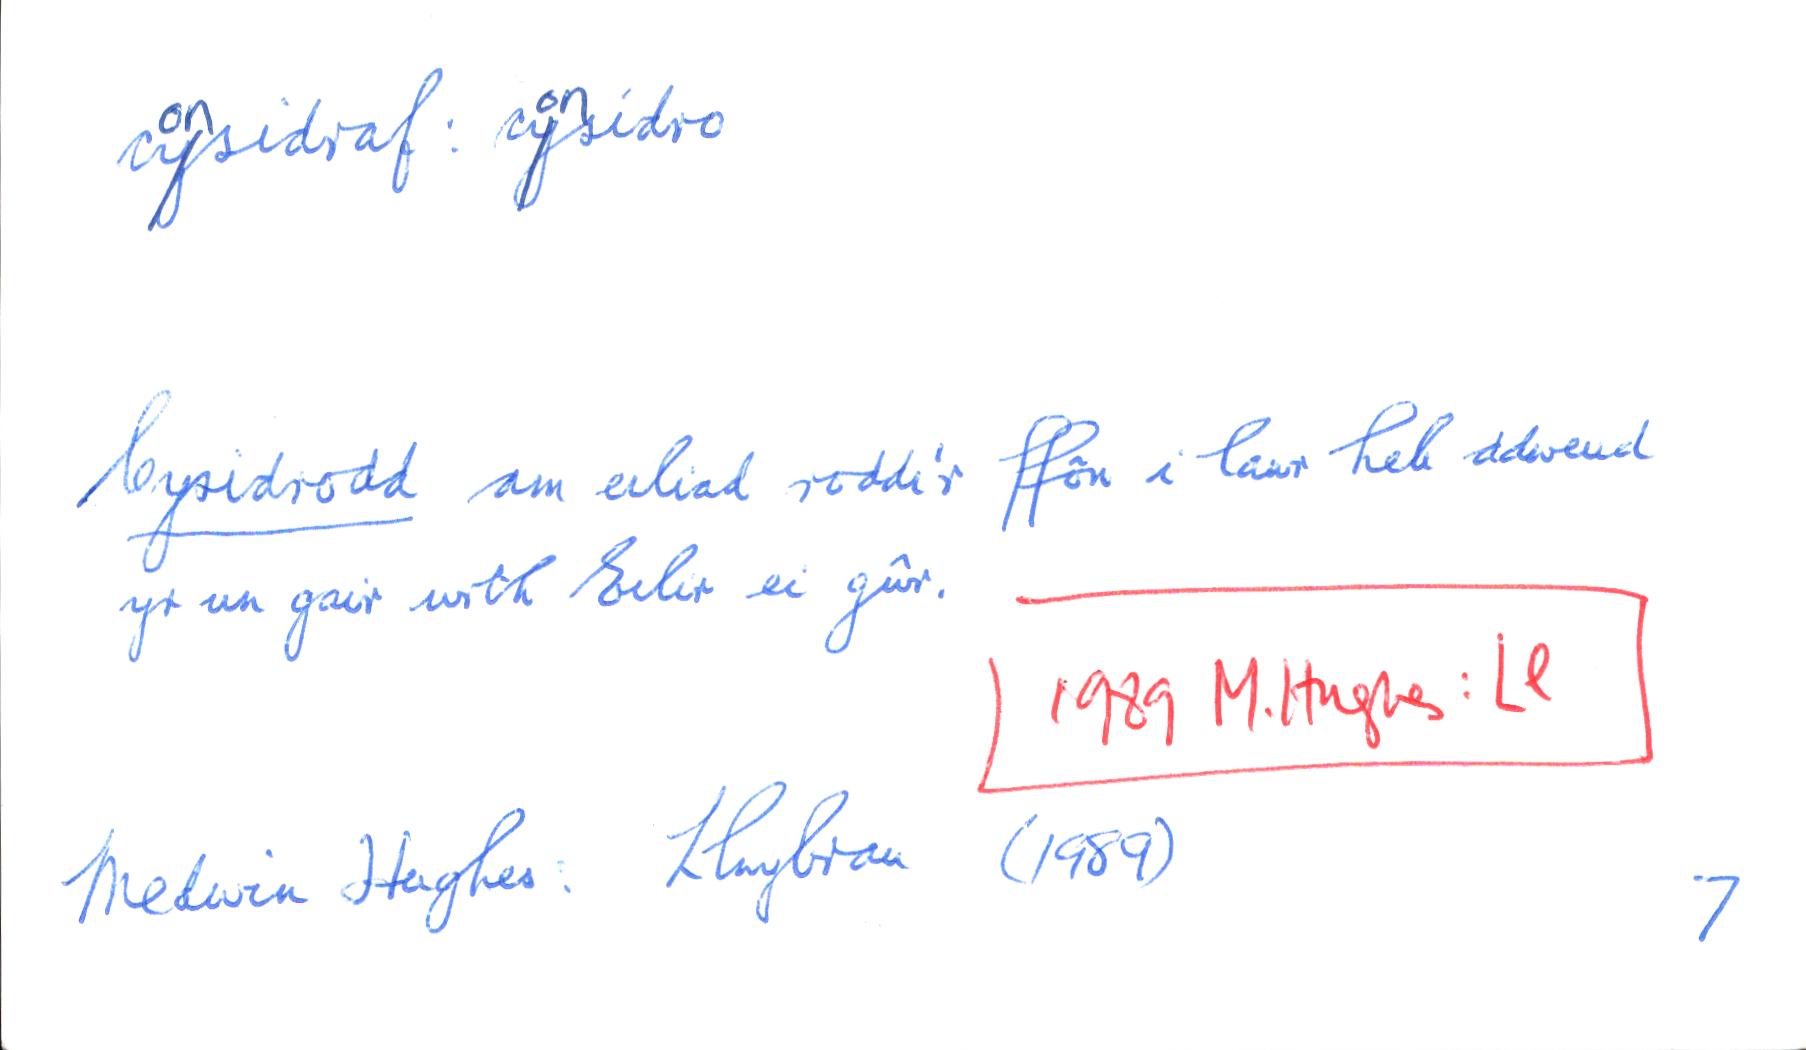 considraf: considro
Cysidrodd am eiliad roddi'r ffôn i lawr heb ddweud
yr un gair wrth Eilir ei gŵr.
1989 M. Hughes: Ll
Medwin Hughes: Llwybrau (1989)
7